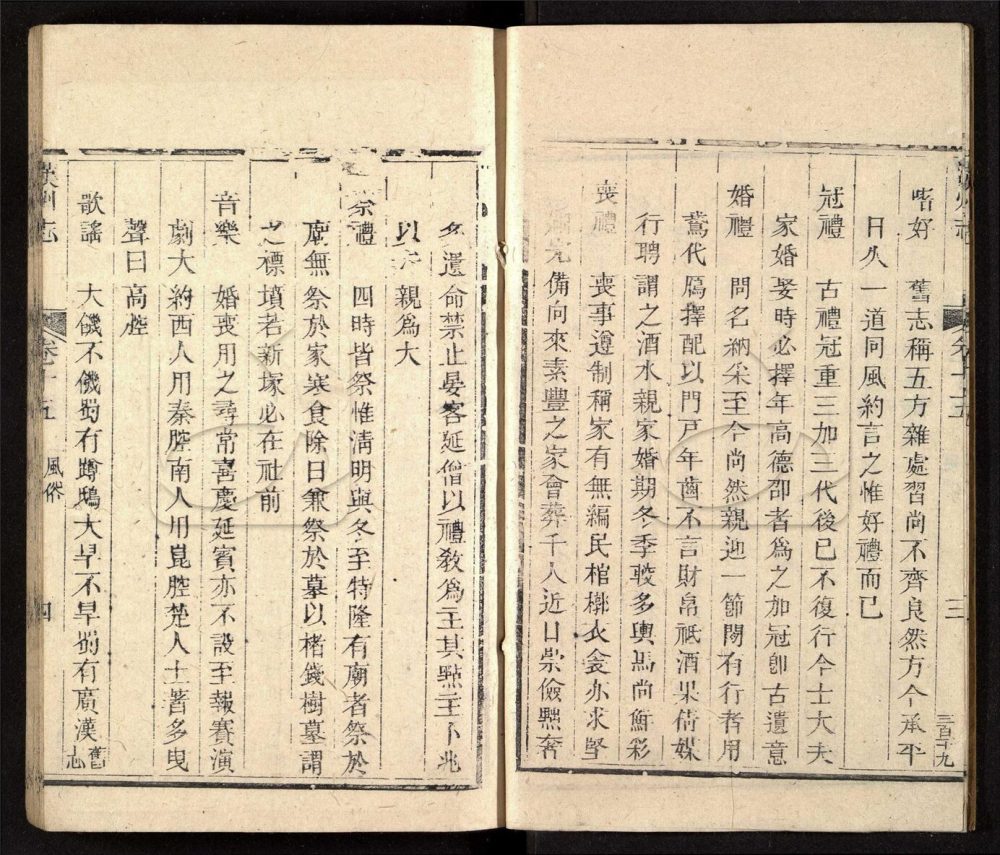 漢州志
卷十五
三
三百十九
嗜好 舊志稱五方雜處習尚不齊良然方今承平
日久一道同風約言之惟好禮而已
冠禮 古禮冠重三加三代後已不復行今士大夫
家婚娶時必擇年高德卲者爲之加冠卽古遺意
婚禮 問名納采至今尚然親迎一節閒有行者用
鵞代鴈擇配以門戸年齒不言財帛祇酒果倩媒
行聘謂之酒水親家婚期冬季較多輿馬尚鮮彩
喪禮 喪事遵制稱家有無編民棺槨衣衾亦求堅
完備向來素豐之家會葬千人近日崇儉黜奢
多遺命禁止晏客延僧以禮敎爲主其點主卜兆
以 親爲大
祭禮 四時皆祭惟淸明與冬至特隆有廟者祭於
廟無祭於家寒食除日兼祭於墓以楮錢樹墓謂
之標墳若新塚必在社前
音樂 婚喪用之尋常喜慶延賓亦不設至報賽演
劇大約西人用秦腔南人用崑腔楚人土著多曳
聲曰高腔
歌謠 大饑不饑蜀有蹲鴟大旱不旱蜀有廣漢舊志
漢州志
卷十五
風俗
四